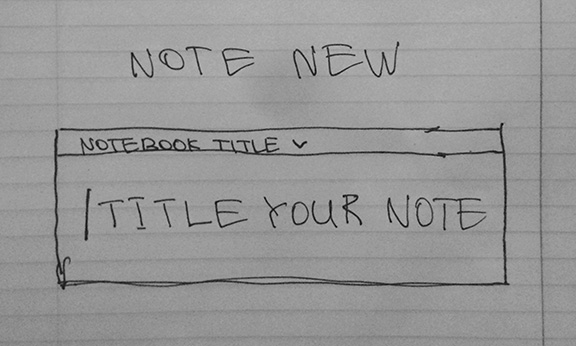 NOTE NEW
NOTEBOOK TITLE
TITLE YOUR NOTE